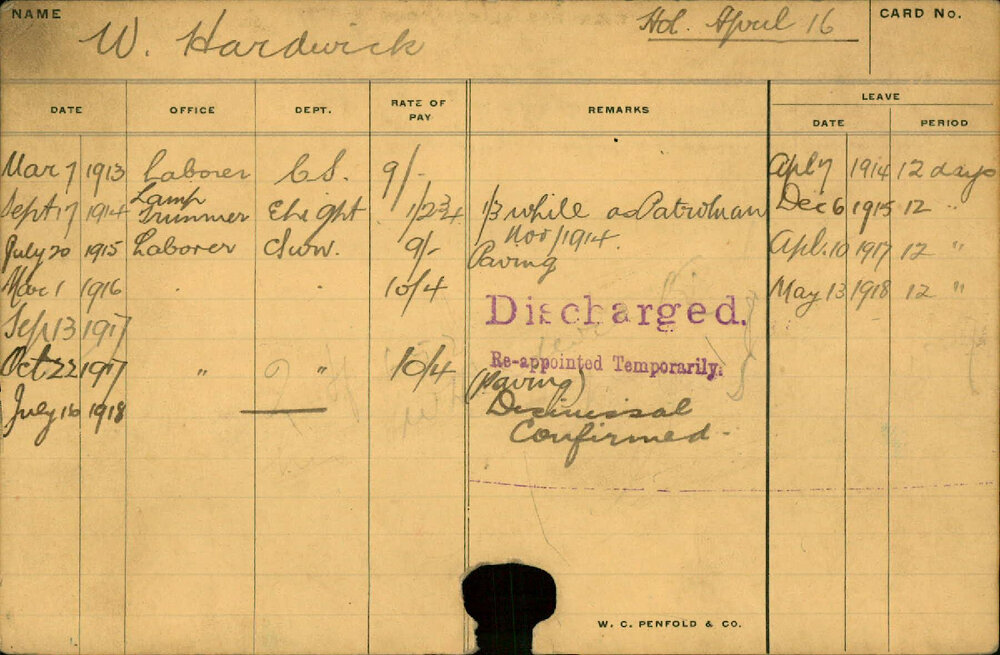 NAME
W. Hardwick
Hol. April 16
CARD NO.
DATE OFFICE DEPT. RATE OF PAY REMARKS LEAVE
DATE PERIOD
Mar 7 1913 Laborer C.S. 9/- Apl 7 1914 12 days
Sept 17 1914 Lamp Trimmer ELight 1/2¾ 1/3 while as Patrolman Nov/1914. Dec 6 1915 12 "
July 20 1915 Laborer 9/- Paving Apl. 10 1917 12 "
Mar 1 1916 . . 10/4 May 13 1918 12 "
Sep 13 1917 Discharged.
Oct 22 1917 " " 10/4 Re-appointed Temporarily.
(Paving)
July 16 1918 Dismissal
Confirmed -
W. C. PENFOLD & CO.